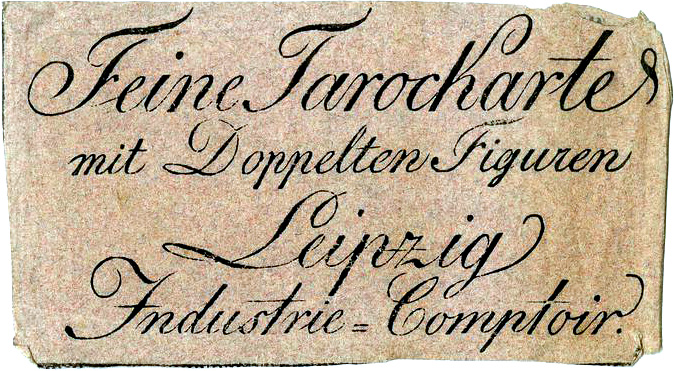 Feine Tarockarte
mit Doppelten Figuren
Leipzig
Industrie=Comptoir.